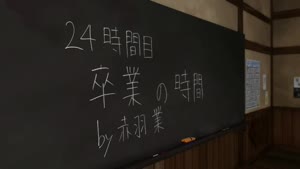 24時間目
卒業の時間
by赤羽業